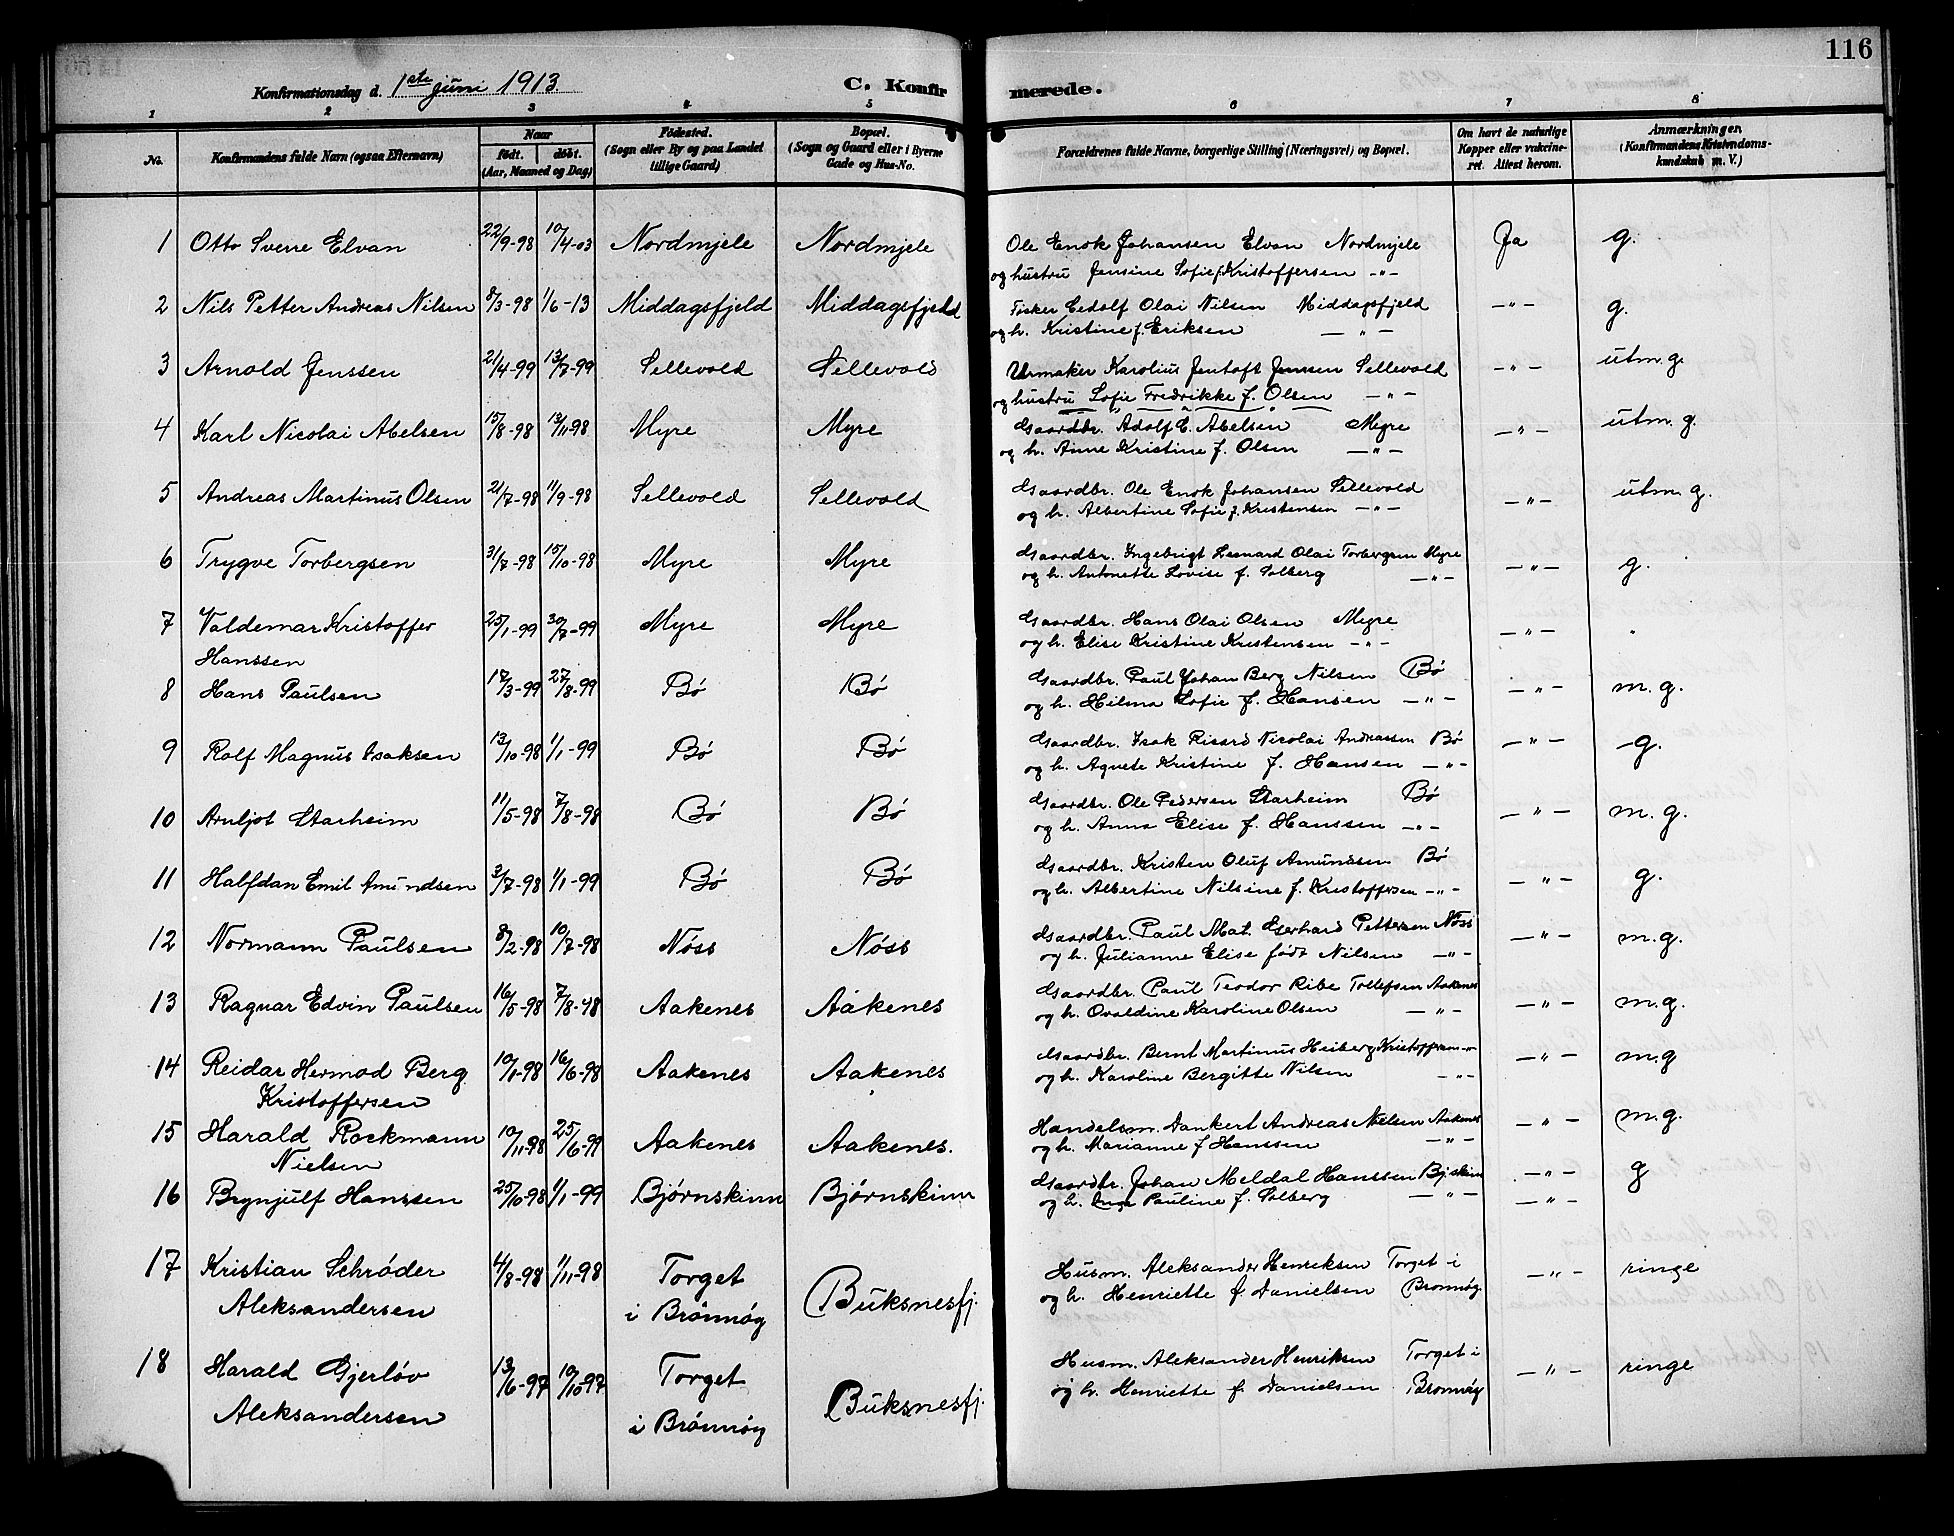 116
Konfirmationsdag d. 1ste juni 1913 C. Konfirmerede.
1 2 3 4 5 6 7 8
No. Konfirmandens fulde Navn (ogsaa Efternavn) Naar født. døbt. (Aar, Maaned og Dag) Fødested. (Sogn eller By og paa Landet tillige Gaard) Bopæl. (Sogn og Gaard eller i Byerne Gade og Hus-No. Forældrenes fulde Navne, borgerlige Stilling (Næringsvei) og Bopæl. Om havt de naturlige Kopper eller vakcineret. Attest herom. Anmærkninger. (Konfirmandens Kristendomskundskab m. V.)
1 Otto Sverre Elvan 22/9-98 10/4-03 Nordmjele Nordmjele Ole Enok Johansen Elvan Nordmjele Ja g.
og hustru Jensine Sofie f. Kristoffersen -"-
2 Nils Petter Andreas Nilsen 8/3-98 1/6-13 Middagsfjeld Middagsfjeld Fisker Edolf Olai Nilsen Middagsfjeld -"- g.
og h. Kristine f. Eriksen -"-
3 Arnold Jenssen 21/4-99 13/7-99 Sellevold Sellevold Urmaker Karolius Jentoft Jensen Sellevold -"- utm.g
og hustru Sofie Fredrikke f. Olsen -"-
4 Karl Nicolai Abelsen 15/8-98 13/11-98 Myre Myre Gaardbr. Adolf E. Abelsen Myre -"- utm. g.
og h. Anne Kristine f. Olsen -"-
5 Andreas Martinus Olsen 21/7-98 11/9-98 Sellevold Sellevold Gaardbr. Ole Enok Johansen Sellevold -"- utm. g.
og h. Albertine Sofie f. Kristensen -"-
6 Trygve Torbergsen 31/7-98 15/10-98 Myre Myre Gaardbr. Ingebrigt Leonard Olai Torbergsen Myre -"- g.
og h. Antonette Lovise f. Solberg -"-
7 Valdemar Kristoffer 25/1-99 30/7-99 Myre Myre Gaardbr. Hans Olai Olsen Myre -"- "
Hanssen og h. Elise Kristine Kristensen -"-
8 Hans Paulsen 17/3-99 27/8-99 Bø Bø Gaardbr. Paul Johan Berg Nilsen Bø -"- m.g.
og h. Hilma Sofie f. Hansen -"-
9 Rolf Magnus Isaksen 13/10-98 1/1-99 Bø Bø Gaardbr. Isak Ricard Nicolai Andreassen Bø -"- g.
og h. Agnete Kristine f. Hansen -"-
10 Arnljot Starheim 11/5-98 7/8-98 Bø Bø Gaardbr. Ole Pedersen Starheim Bø -"- m.g.
og h. Anna Elise f. Hanssen -"-
11 Halfdan Emil Amundsen 3/7-98 1/1-99 Bø Bø Gaardbr. Kristen Oluf Amundsen Bø -"- g.
og h. Albertine Nilsine f. Kristoffersen -"-
12 Normann Paulsen 8/2-98 10/7-98 Nøss Nøss Gaardbr. Paul Mat. Gerhard Pettersen Nøss -"- m.g.
og h. Julianne Elise født Nilsen -"-
13 Ragnar Edvin Paulsen 16/5-98 7/8-48 Aakenes Aakenes Gaardbr. Paul Teodor Ribe Tollefsen Aakenes -"- m.g.
og h. Ovaldine Karoline Olsen -"-
14 Reidar Hermod Berg 10/1-98 16/6-98 Aakenes Aakenes Gaardbr. Bernt Martinus Heiberg Kristoffersen -"- -"- m.g
Kristoffersen og h. Karoline Bergitte Nilsen -"-
15 Harald Rockmann 10/11-98 25/6-99 Aakenes Aakenes. Handelsm. Dankert Andreas Nielsen Aakenes -"- m.g.
Nielsen og h. Marianne f. Hanssen -"-
16 Brynjulf Hanssen 25/10-98 1/1-99 Bjørnskinn Bjørnskinn Gaardbr. Johan Meldal Hanssen Bjskinn -"- g
og h. Inga Pauline f. Solberg -"- -"-
17 Kristian Schrøder 4/8-98 1/11-98 Torget Buksnesfj. Husm. Aleksander Henriksen Torget i -"- ringe
Aleksandersen i Brønnøy og h. Henriette f. Danielsen Brønnøy
18 Harald Gjerløv 13/6-97 10/10-97 Torget Buksnesfj. Husm. Aleksander Henriksen Torget i -"- ringe
Aleksandersen i Brønnøy og h. Henriette f. Danielsen Brønnøy